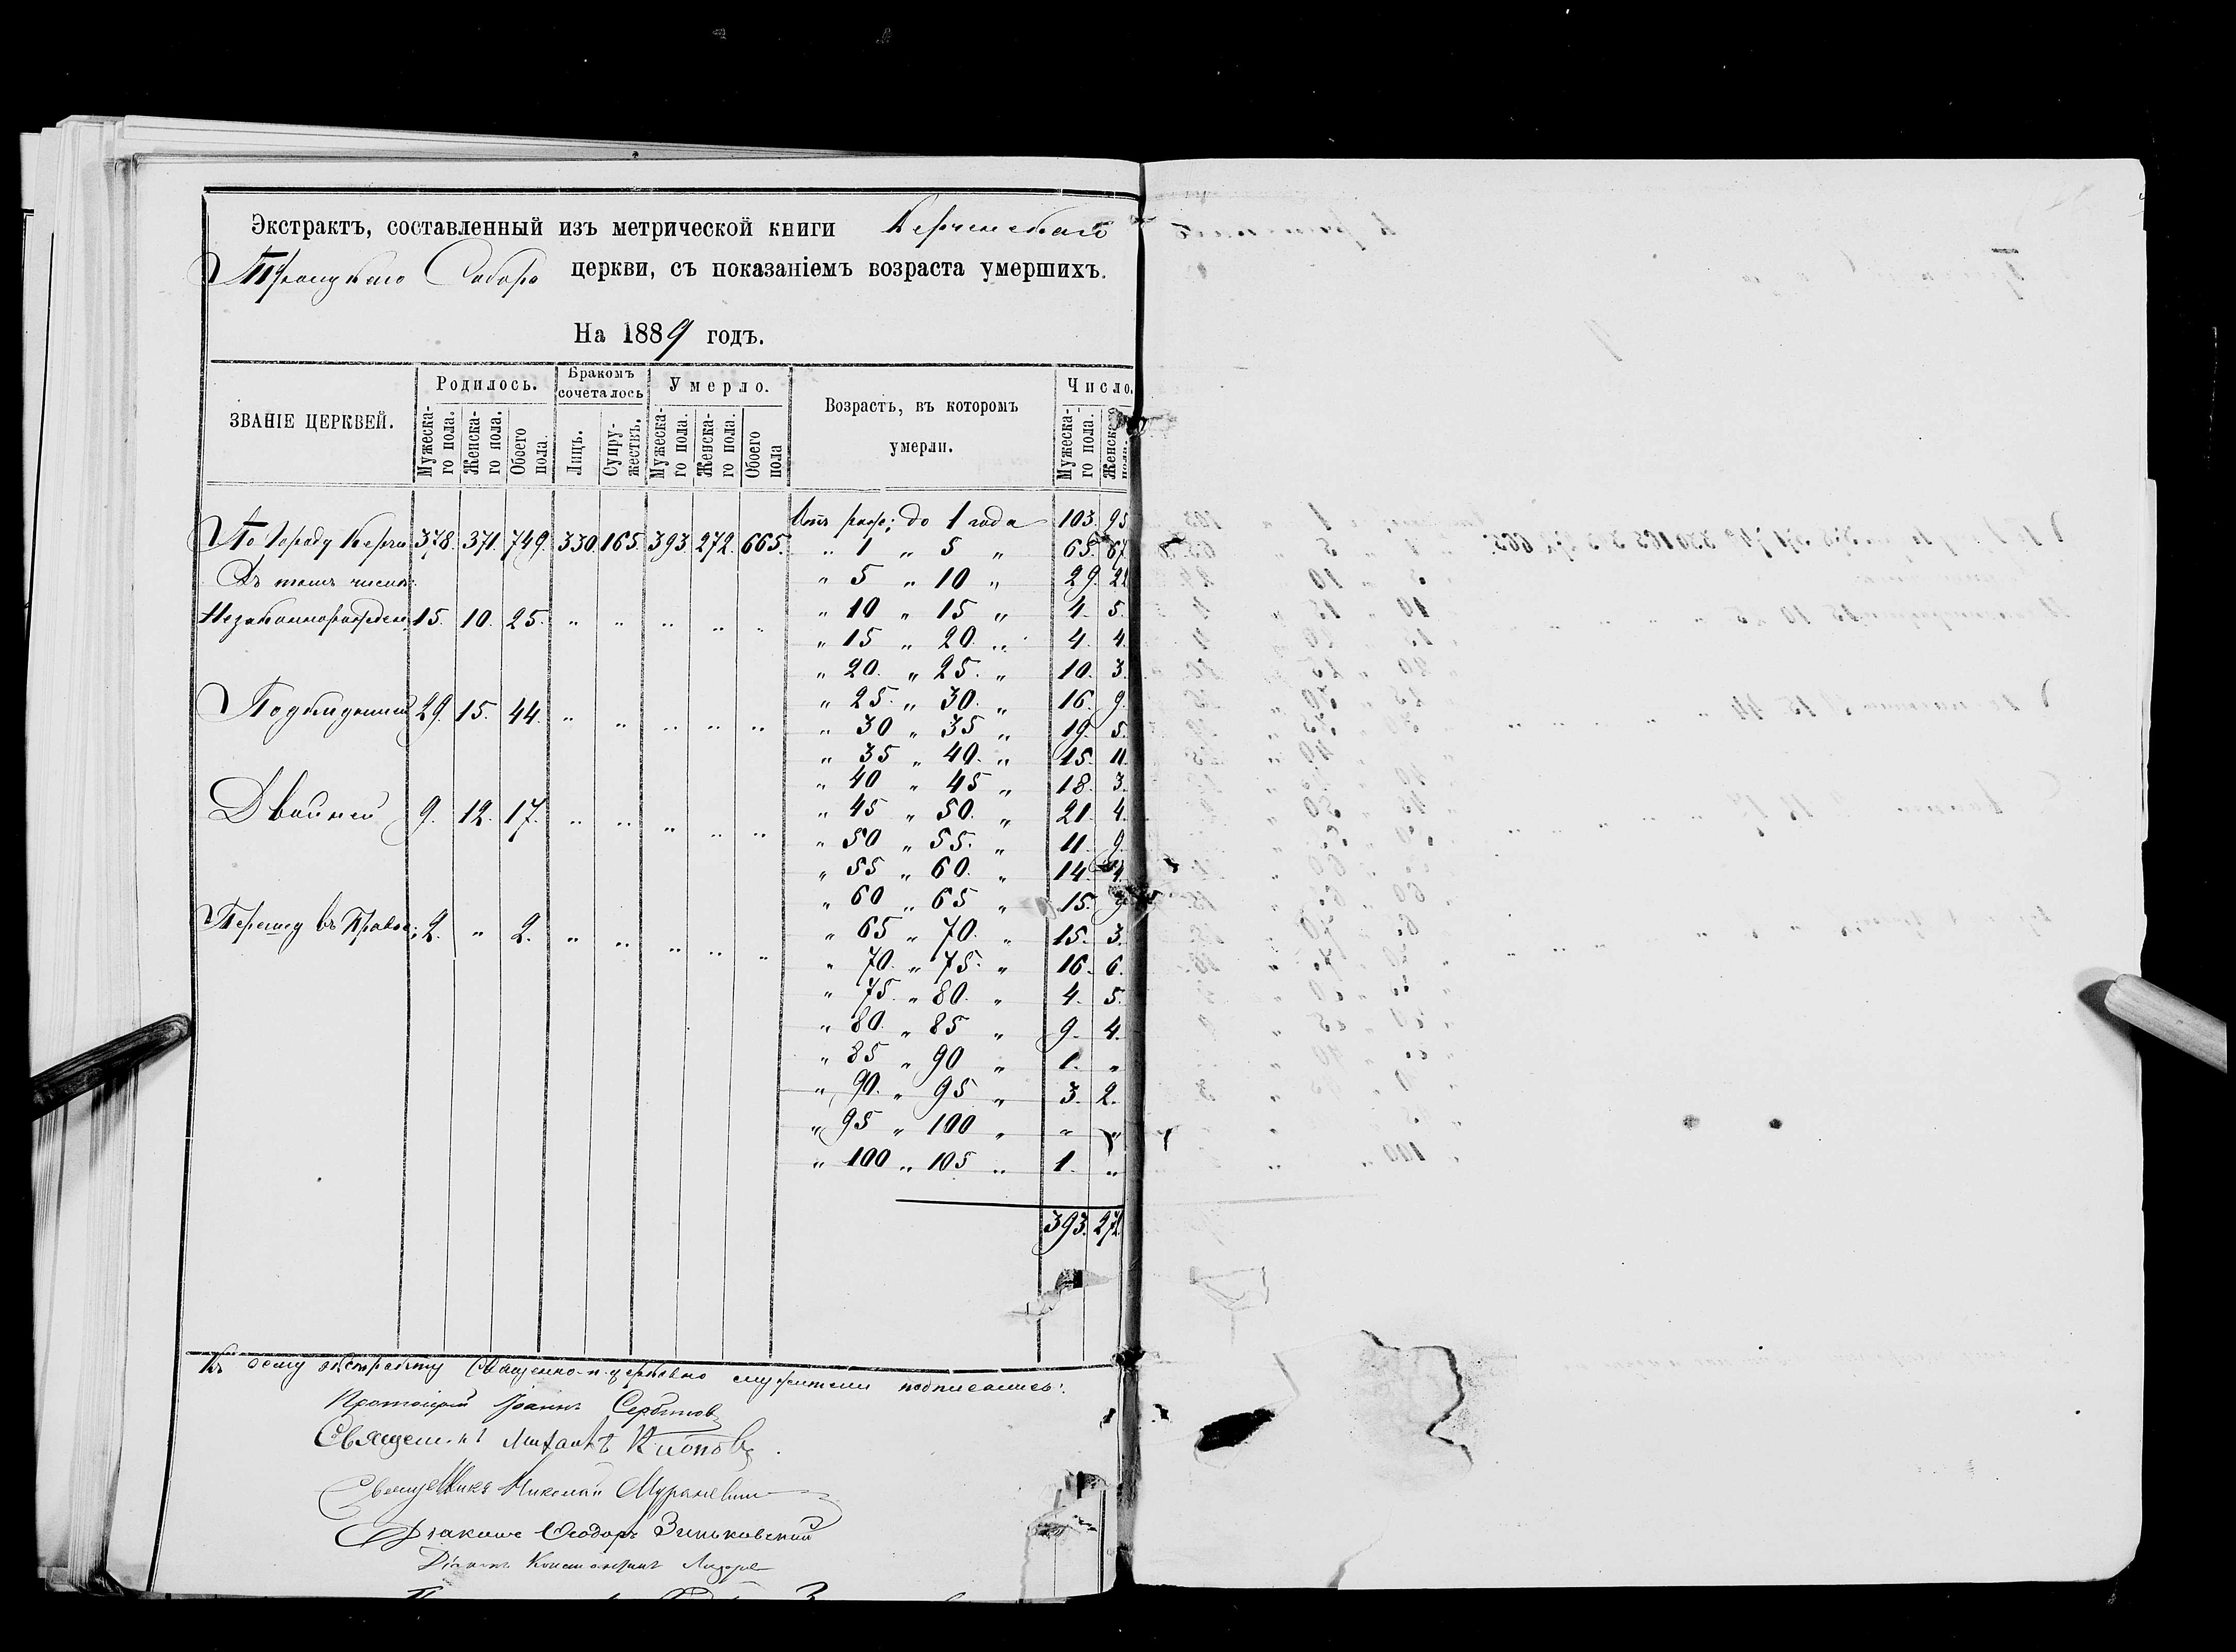 Экстрактъ, составленный изъ метрической книги Керченскаго
Троицкаго Собора церкви, съ показаніемъ возраста умершихъ.
На 1889 годъ.
ЗВАНІЕ ЦЕРКВЕЙ.
Родилось.
Бракомъ сочеталось
Умерло.
Возрастъ, въ которомъ умерли.
Число.
Мужеска-го пола.
Женска-го пола.
Обоего пола.
Лицъ.
Супру-жествъ.
Мужеска-го пола.
Женска-го пола.
Обоего пола
Мужеска-го пола.
Женска
По городу Керчи 378. 371. 749. 330. 165. 393. 272. 665.
Въ томъ числѣ:
Незаконнорожден. 15. 10. 25. „ „ „ „ „
Подкидышей 29. 15. 44. „ „ „ „ „
Двойней 9. 12. 17. „ „ „ „ „
Перешед. въ Правос: 2. „ 2. „ „ „ „ „
Отъ рожд: до 1 года 103. 95
„ 1 „ 5 „ 65. 67.
„ 5 „ 10 „ 29. 22
„ 10 „ 15 „ 4. 5.
„ 15 „ 20. „ 4. 4.
„ 20. „ 25. „ 10. 3.
„ 25. „ 30. „ 16. 9.
„ 30 „ 35 „ 19. 5.
„ 35 „ 40. „ 15. 11.
„ 40 „ 45 „ 18. 3.
„ 45 „ 50. „ 21. 4.
„ 50 „ 55. „ 11. 9.
„ 55 „ 60. „ 14.
„ 60 „ 65 „ 15. 9
„ 65 „ 70. „ 15. 3.
„ 70. „ 75. „ 16. 6.
„ 75. „ 80. „ 4. 5.
„ 80. „ 85 „ 9. 4.
„ 85 „ 90 „ 1. „
„ 90. „ 95 „ 3. 2.
„ 95 „ 100 „ „ „
„ 100 „ 105 „ 1. „
393. 272
Къ сему экстракту Священно-и-церковно служители подписались:
Протоіерей Іоаннъ Сербиновъ
Священникъ Михаилъ Китовъ
Священникъ Николай Мураневич
Діаконъ Ѳеодоръ Зиньковскій
Діаконъ Константинъ